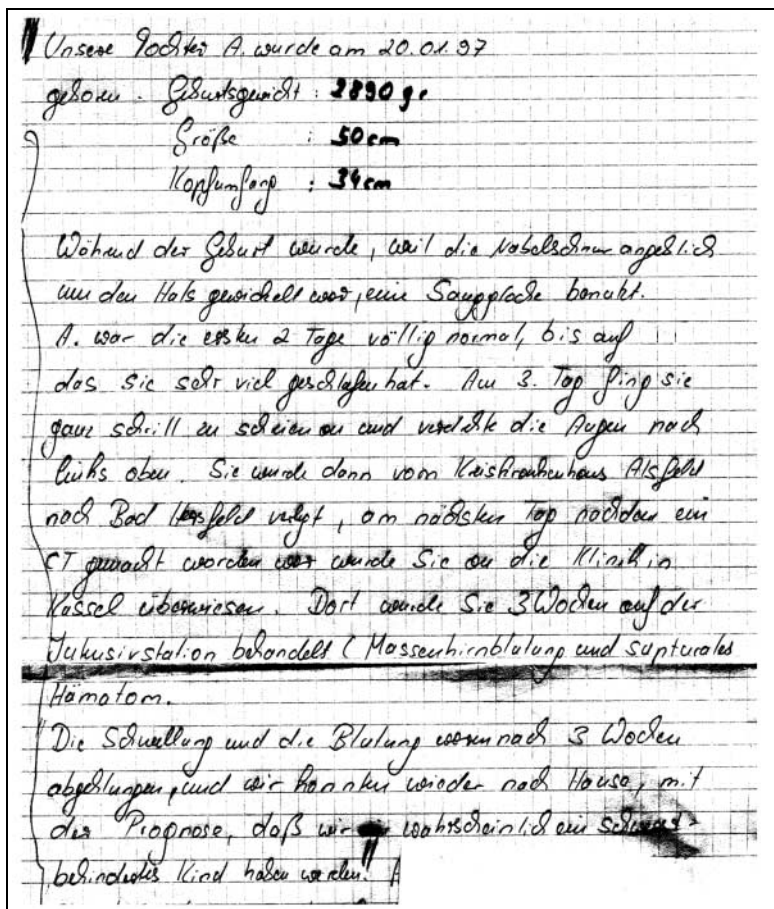 Unsere Tochter A. wurde am 20.01.97
geboren. Geburtsgewicht: 2890 gr
Größe : 50 cm
Kopfumfang : 34 cm
Während der Geburt wurde, weil die Nabelschnur angeblich
um den Hals gewickelt war, eine Saugglocke benutzt.
A. war die ersten 2 Tage völlig normal, bis auf
das sie sehr viel geschlafen hat. Am 3. Tag fing sie
ganz schrill zu schreien an und verdrehte die Augen nach
links oben. Sie wurde dann vom Kreiskrankenhaus Alsfeld
nach Bad Hersfeld verlegt, am nächsten Tag nachdem ein
CT gemacht worden war wurde Sie an die Klinik in
Kassel überwiesen. Dort wurde Sie 3 Wochen auf der
Intensivstation behandelt (Massenhirnblutung und supturales
Hämatom.
Die Schwellung und die Blutung waren nach 3 Wochen
abgeklungen, und wir konnten wieder nach Hause, mit
der Prognose, daß wir wahrscheinlich ein schwerst-
behindertes Kind haben werden!